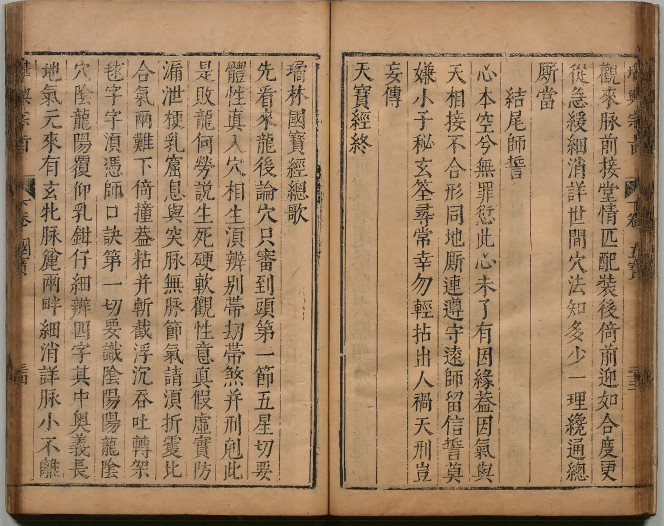 觀來脉前接堂情匹配裝後倚前迎如合度更
從急緩細消詳世間穴法知多少一理纔通總
厮當
結尾師誓
心本空兮無罪愆此心未了有因緣葢因氣與
天相接不合形同地厮連遵守遠師留信誓莫
嫌小子秘玄筌尋常幸勿輕拈出人禍天刑豈
妄傳
天寶經終
璚林國寶經總歌
先看來龍後論穴只審到頭第一節五星切要
體性真入穴相生湏辨别帶刼帶煞并刑剋此
是敗龍何勞説生死硬軟觀性意真假虛實防
漏泄梗乳窟息與突脉無脉節氣請湏折雯比
合氣兩難下倚撞葢粘并斬截浮沉吞吐轉架
毬字字湏憑師口訣第一切要識陰陽陽龍陰
穴陰龍陽覆仰乳鉗仔細辨四字其中奥義長
地氣元來有玄牝脉麄兩畔細消詳脉小不離